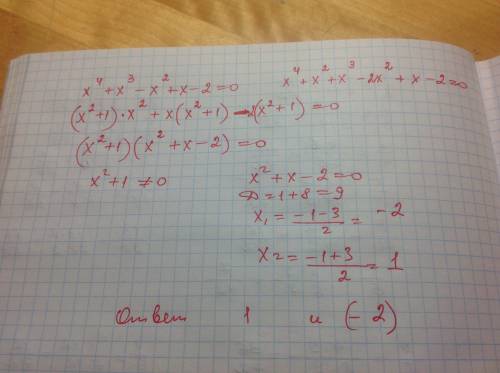 x⁴+x³-x²+x-2=0
x⁴+x²+x³-2x²+x-2=0
(x²+1)·x²+x(x²+1)-2(x²+1)=0
(x²+1)(x²+x-2)=0
x²+1≠0
x²+x-2=0
D=1+8=9
x₁=(-1-3)/2=-2
x₂=(-1+3)/2=1
Ответ 1 и (-2)